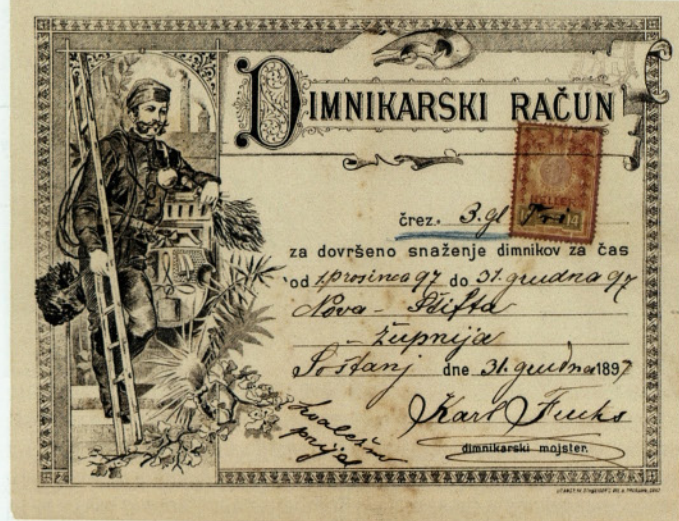 DIMNIKARSKI RAČUN
črez. 3. gl
za dovršeno snaženje dimnikov za čas
od 1. prosinca 97 do 31. grudna 97
Nova - Štifta
- župnija
Šoštanj dne 31. grudna 1897
Karl Fucks
dimnikarski mojster.
hvaležno
prijel